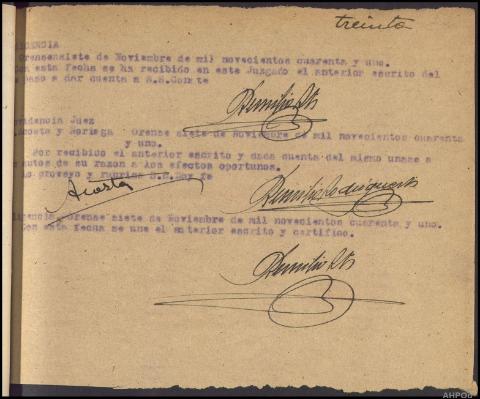 treinta
IGENCIA
Orensesiete de Noviembre de mil novecientos cuarenta y uno.
Con esta fecha se ha recibido en este Juzgado el anterior escrito del
paso a dar cuenta a S.S.Conste
videncia Juez
Acosta y Noriega Orense siete de noviembre de mil novecientos cuarenta
y uno.
Por recibido el anterior escrito y dada cuenta del mismo unase a
autos de su razon a los efectos oportunos.
Lo proveyo y rubrica S.S.Doy fe
Acosta
igencia orense siete de Noviembre de mil novecientos cuarenta y uno.
Con esta fecha se une el anterior escrito y certifico.
AHPOu